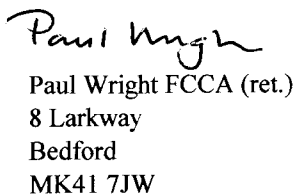 Paul Wright
Paul Wright FCCA (ret.)
8 Larkway
Bedford
MK41 7JW